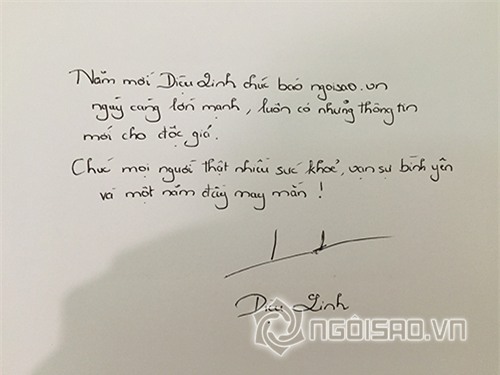 Năm mới Diệu Linh chúc báo ngoisao.vn
ngày càng lớn mạnh, luôn có những thông tin
mới cho độc giả.
Chúc mọi người thật nhiều sức khoẻ, vạn sự bình yên
và một năm đầy may mắn!
Diệu Linh
NGÔISAO.VN